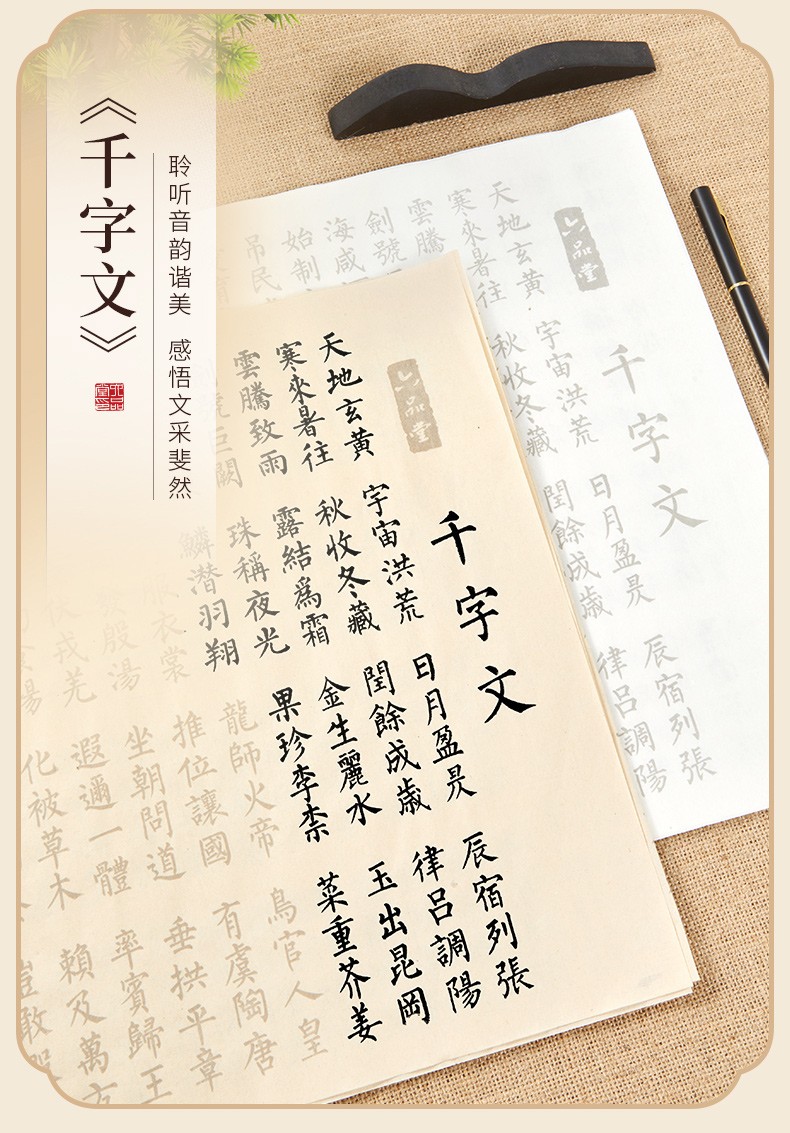 《千字文》
聆听音韵谐美 感悟文采斐然
六品堂
千字文
天地玄黄 宇宙洪荒 日月盈昃 辰宿列張
寒來暑往 秋收冬藏 閏餘成歲 律呂調陽
雲騰
劍號
海咸
始制
吊民
六品堂
千字文
天地玄黄 宇宙洪荒 日月盈昃 辰宿列張
寒來暑往 秋收冬藏 閏餘成歲 律呂調陽
雲騰致雨 露結爲霜 金生麗水 玉出昆岡
巨闕 珠稱夜光 果珍李柰 菜重芥姜
鱗潜羽翔 龍師火帝 鳥官人皇
衣裳 推位讓國 有虞陶唐
殷湯 坐朝問道 垂拱平章
戎羌 遐邇一體 率賓歸王
化被草木 賴及萬方
豈敢